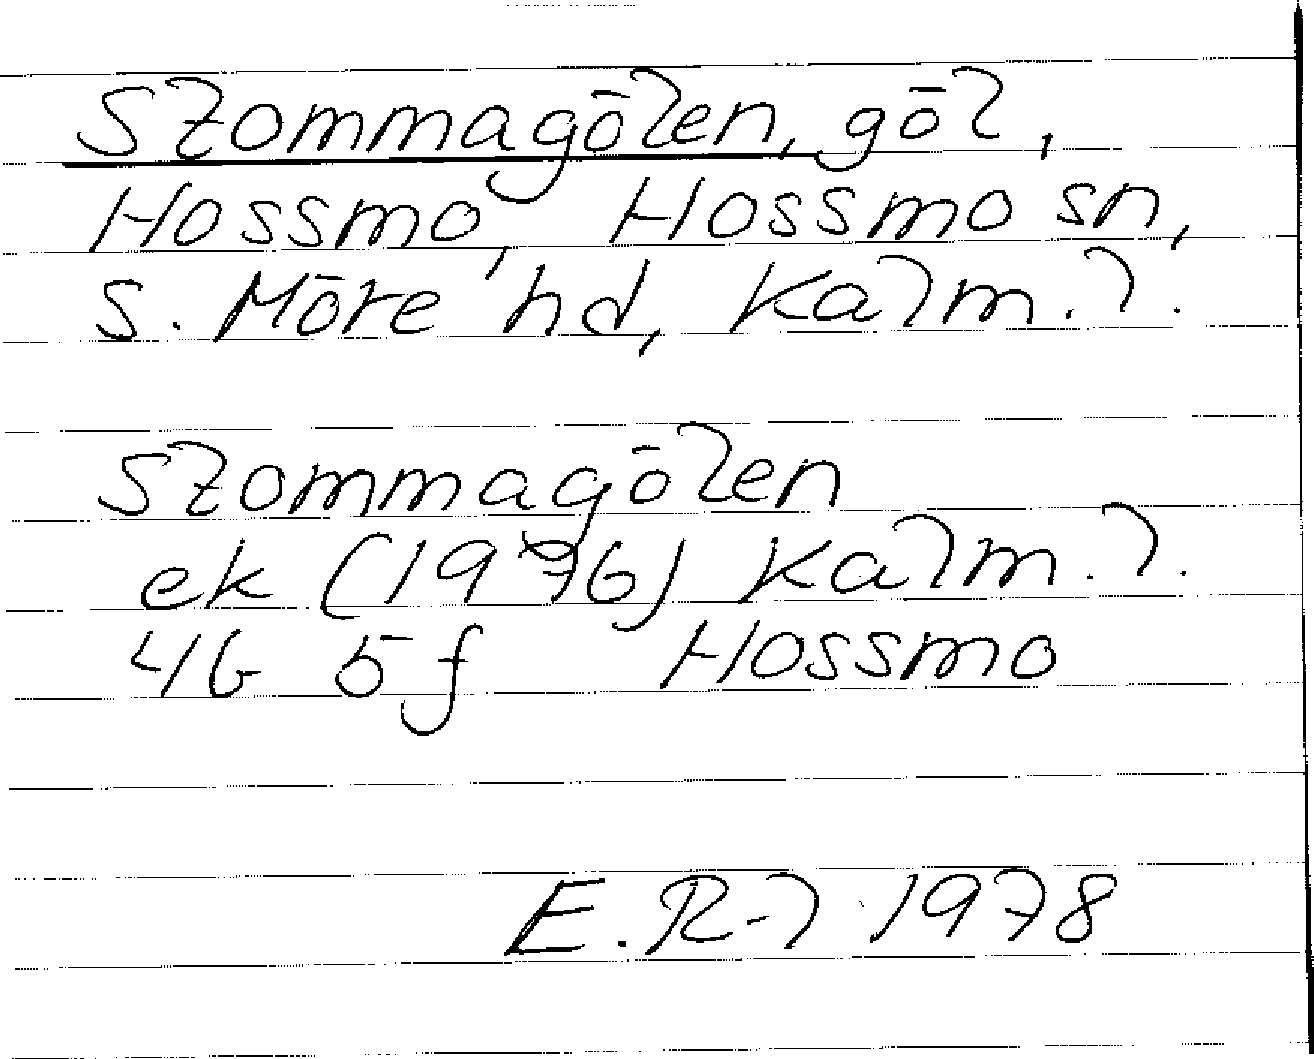 Slommagölen, göl,
Hossmo, Hossmo sn,
S. Möre hd, Kalm. l.
Slommagölen
ek (1976) Kalm. l.
4G 5f Hossmo
E. R-l 1978